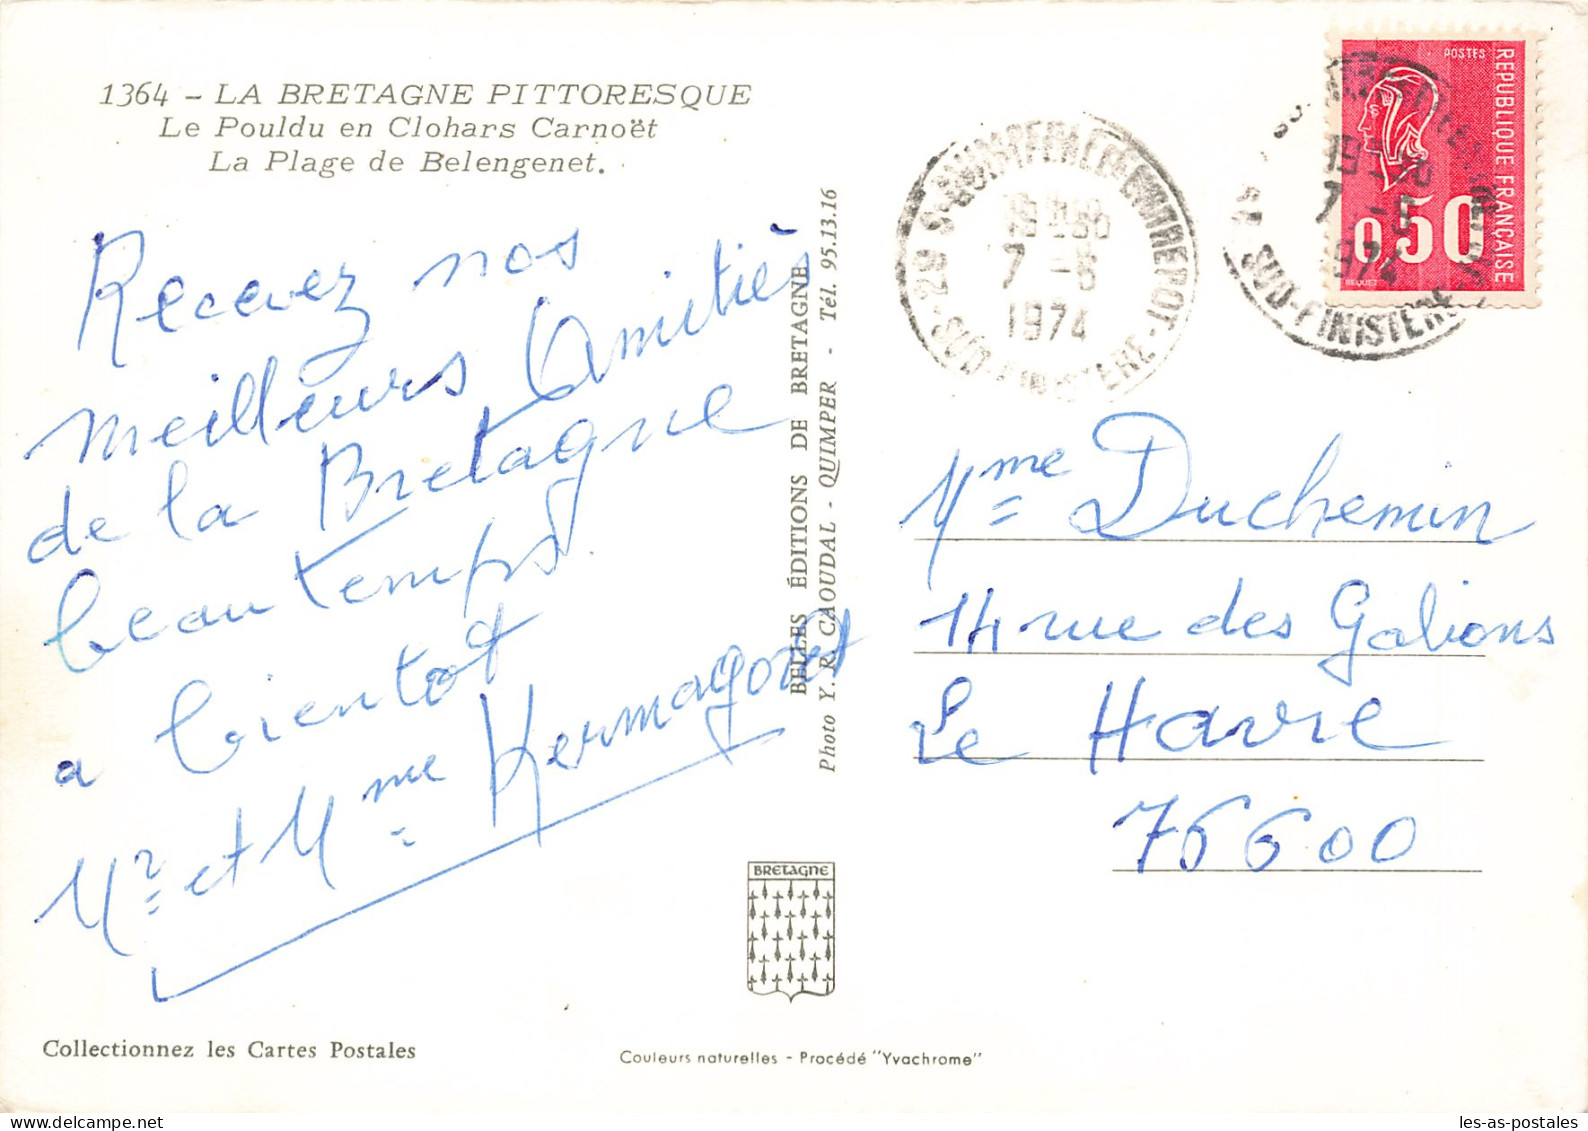 1364 - LA BRETAGNE PITTORESQUE
Le Pouldu en Clohars Carnoët
La Plage de Belengenet.
Recevez nos
meilleurs Amitiés
de la Bretagne
beau temps
a bientot
Mr et Mme Kermagoret
BELLES ÉDITIONS DE BRETAGNE
Photo Y. R. CAOUDAL - QUIMPER - Tél. 95.13.16
7 -5
1974
SUD-FINISTERE
POSTES
REPUBLIQUE FRANÇAISE
0,50
BEQUET
7 -5
1974
SUD-FINISTERE
Mme Duchemin
14 rue des Galions
Le Havre
76600
BRETAGNE
Collectionnez les Cartes Postales
Couleurs naturelles - Procédé "Yvachrome"
les-as-postales